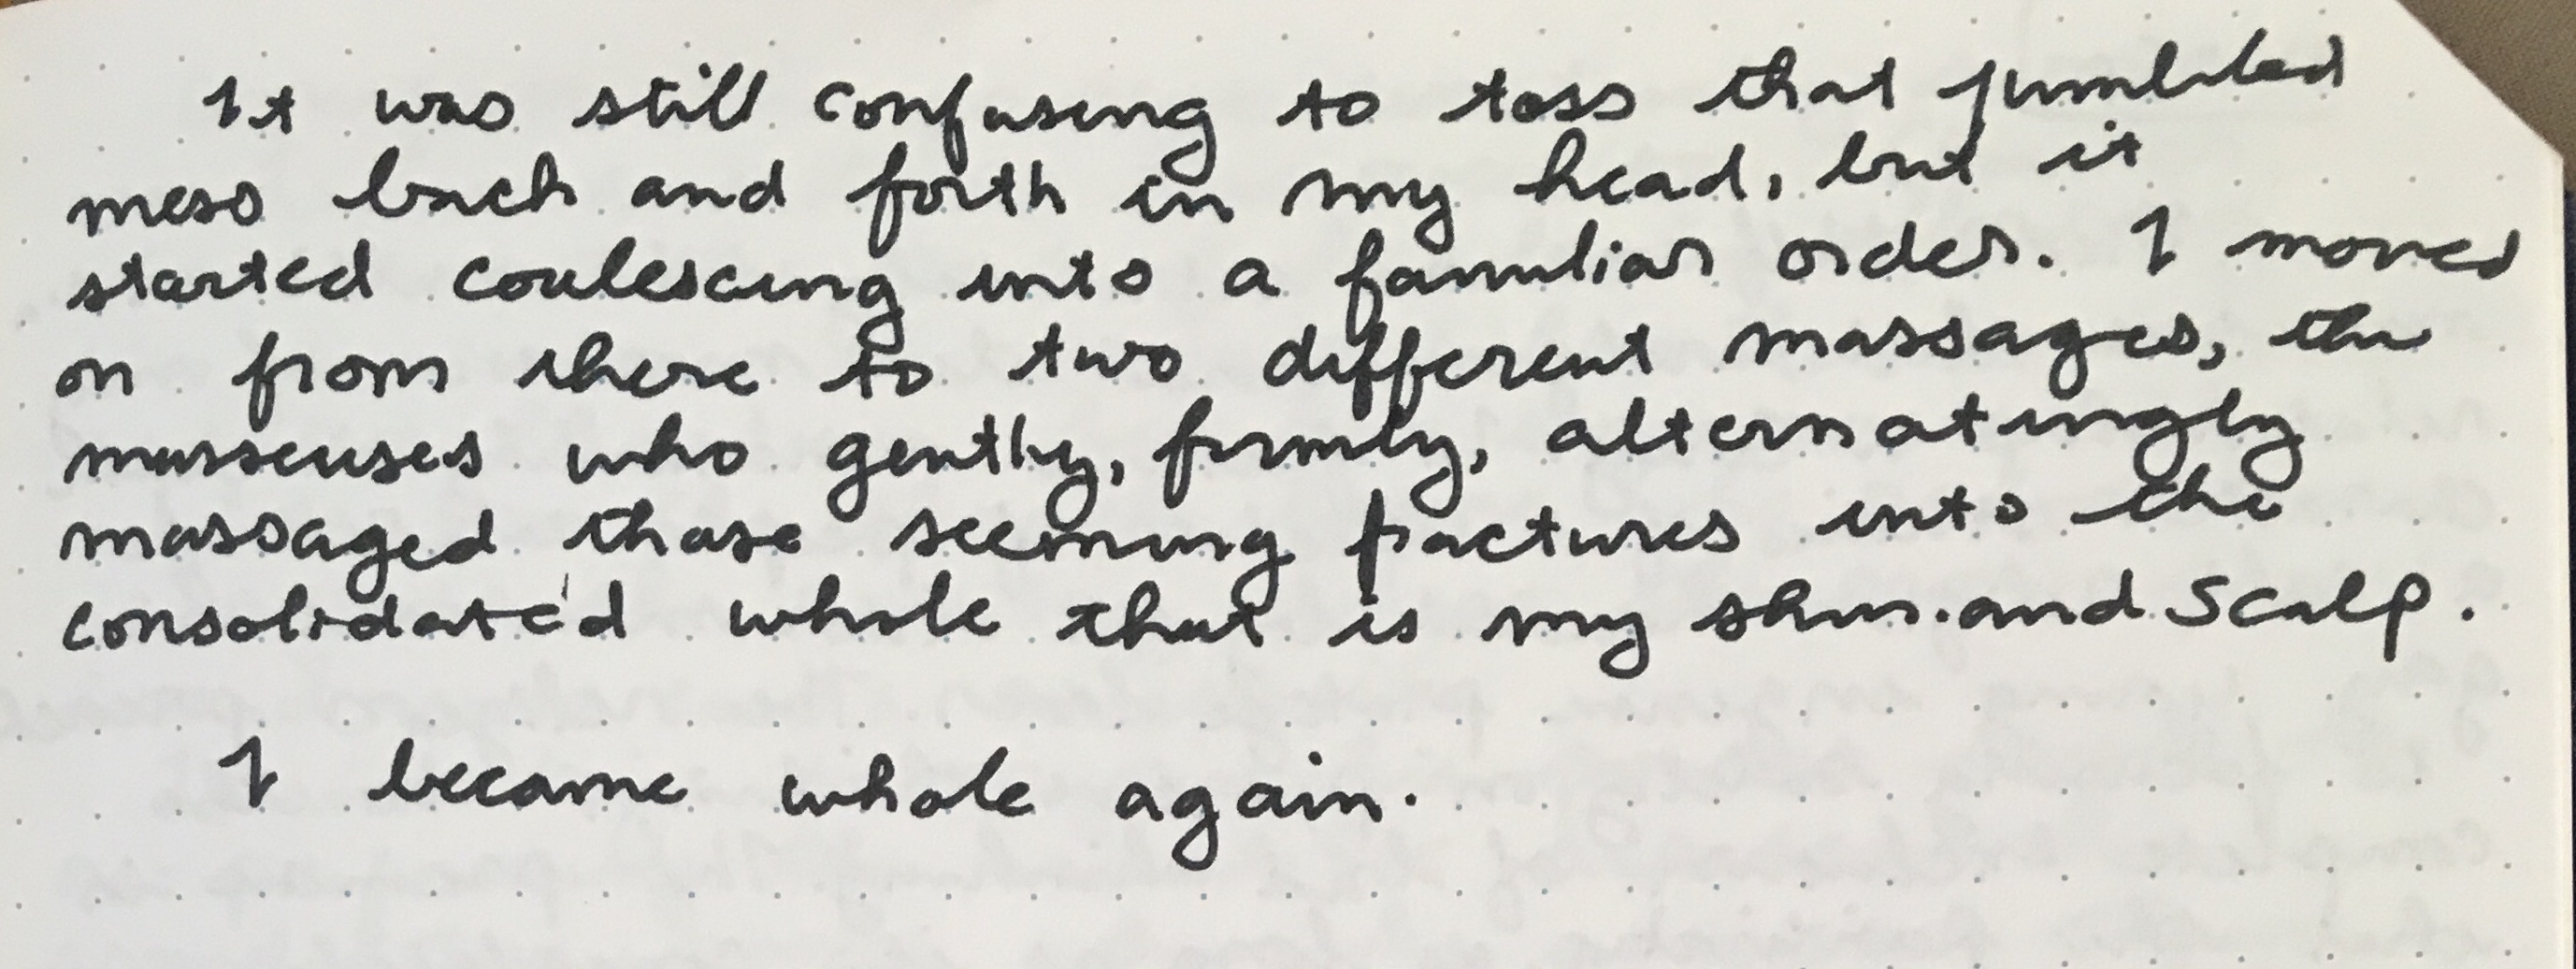 It was still confusing to toss that jumbled
mess back and forth in my head, but it
started coalescing into a familiar order. I moved
on from there to two different massages, the
masseuses who gently, firmly, alternatingly
massaged those seeming fractures into the
consolidated whole that is my skin and scalp.
I became whole again.